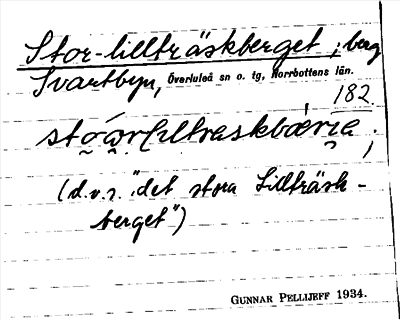 Stor-lillträskberget ; berg
Svartbyn, Överluleå sn o. tg, Norrbottens län.
182
(d.v.s. "det stora Lillträsk-
berget")
GUNNAR PELLIJEFF 1934.